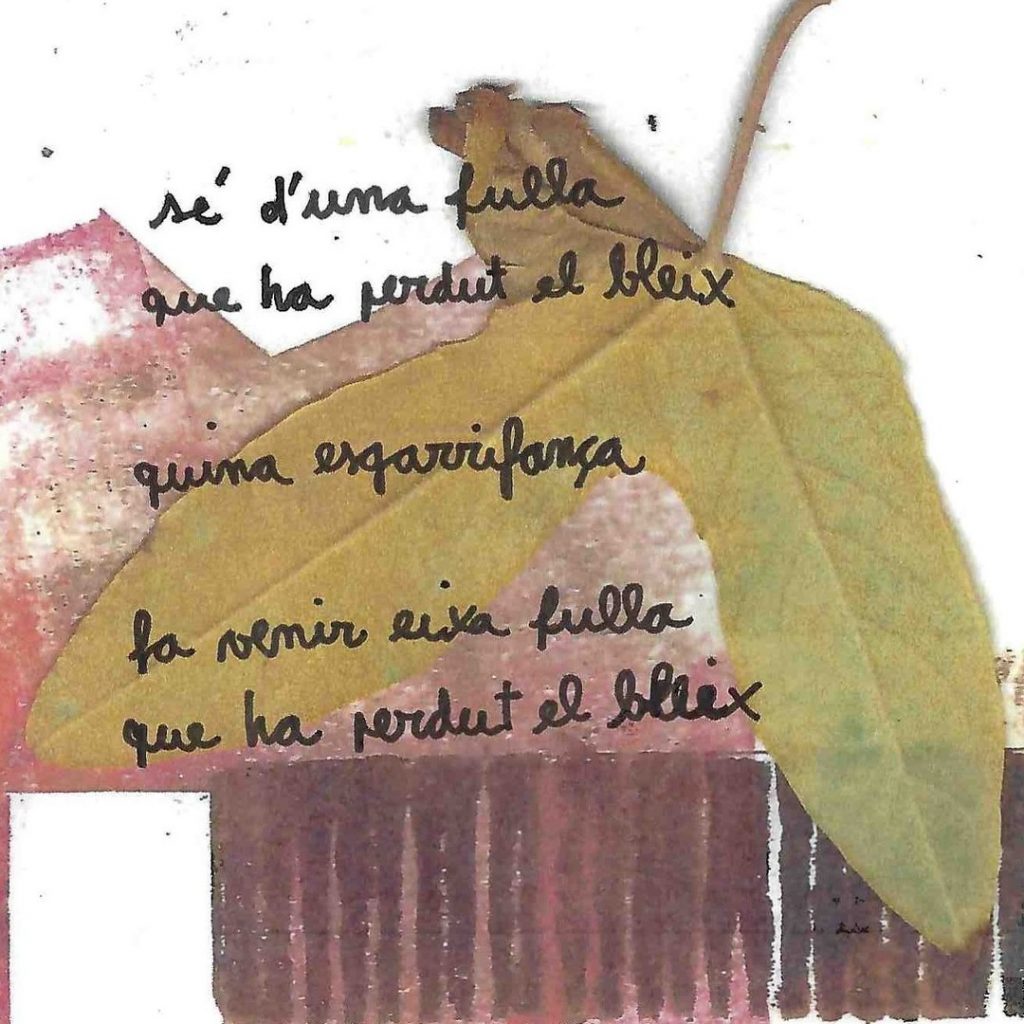 sé d'una fulla
que ha perdut el bleix
quina esgarrifança
fa venir eixa fulla
que ha perdut el bleix